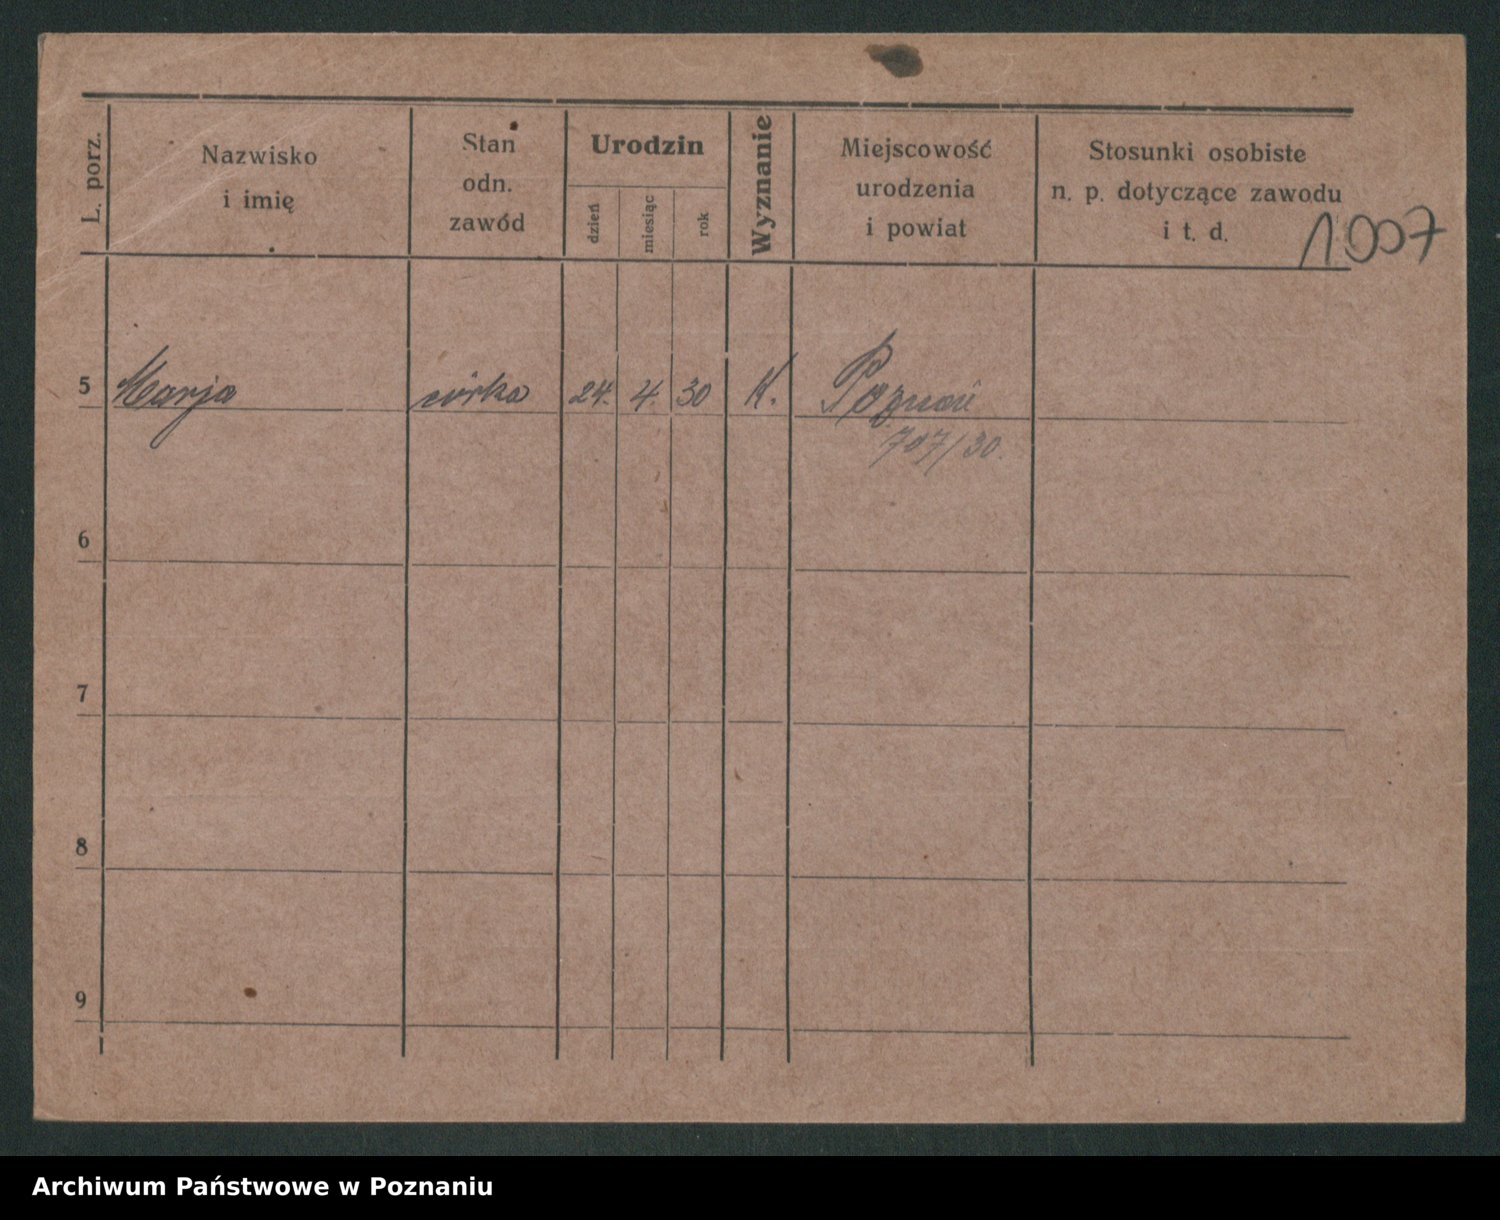 L. porz.
Nazwisko
i imię
Stan
odn.
zawód
Urodzin
dzień
miesiąc
rok
Wyznanie
Miejscowość
urodzenia
i powiat
Stosunki osobiste
n. p. dotyczące zawodu
i t. d.
1007
5 Marja córka 24. 4. 30 K. Poznań
707/30.
6
7
8
9
Archiwum Państwowe w Poznaniu